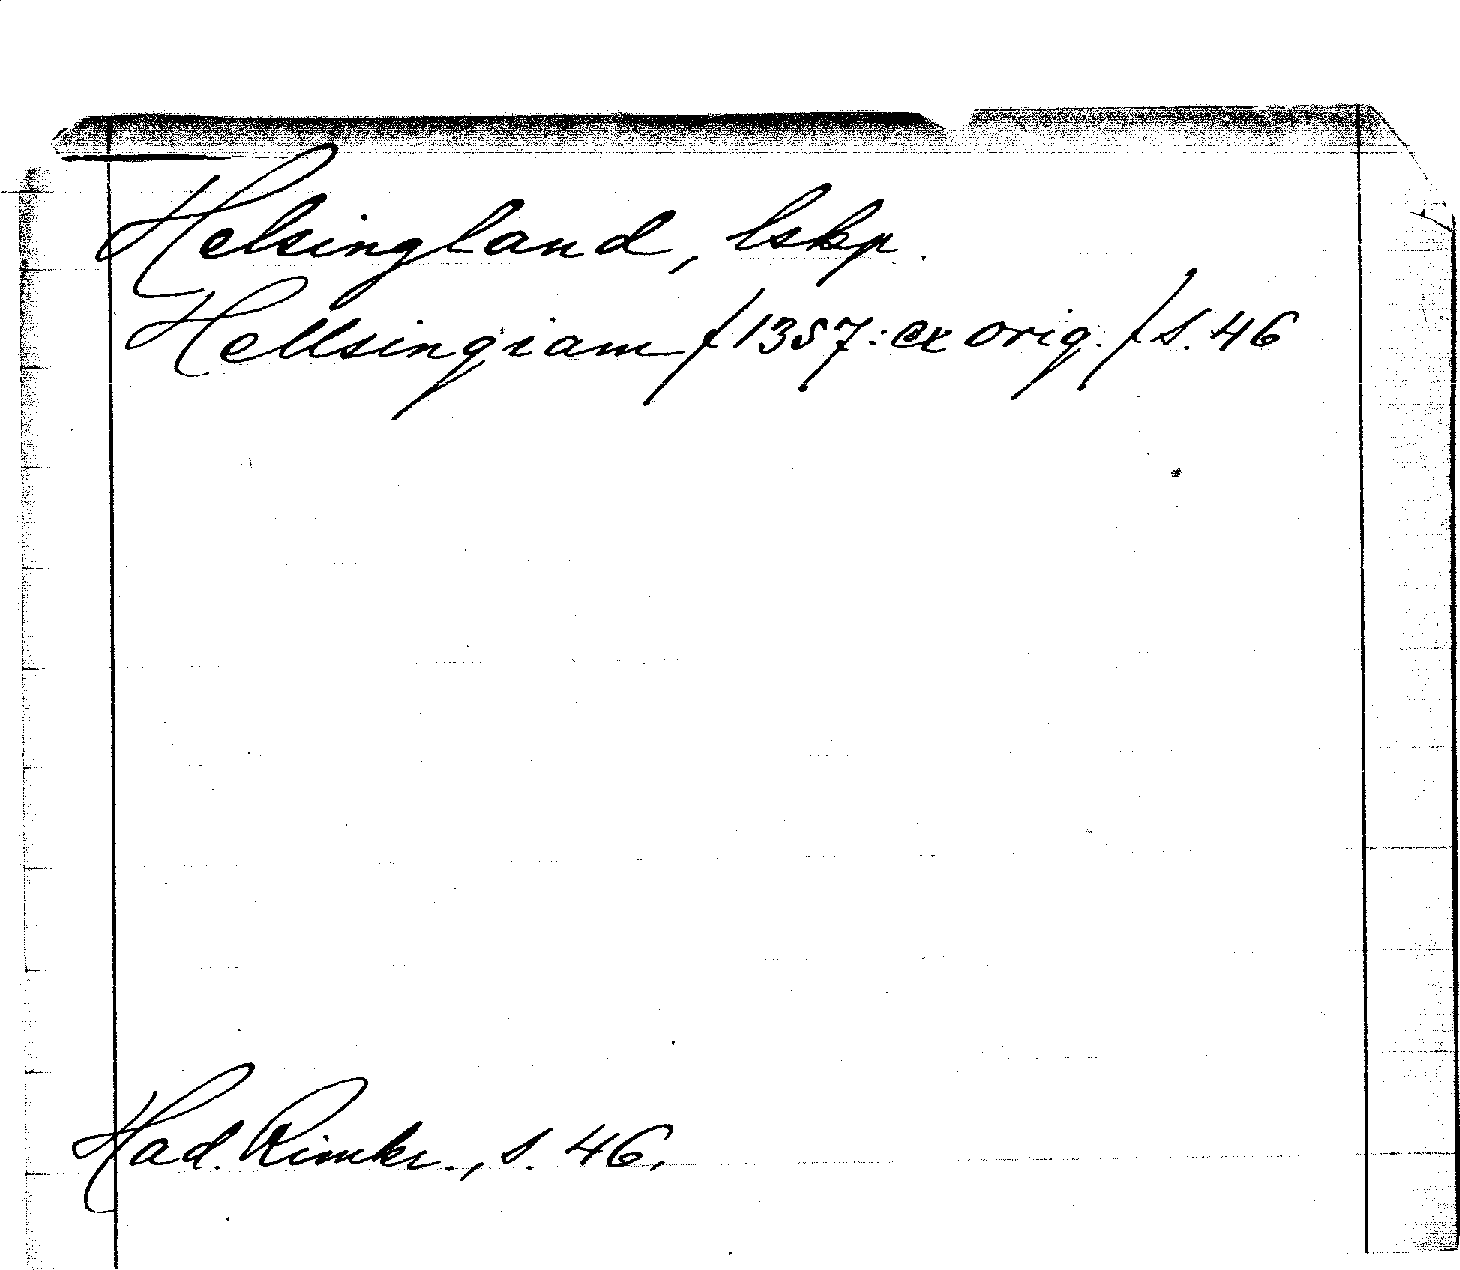 Helsingland, lskp.
Hellsingiam /1357: ex orig./ s. 46
Had. Rimkr., s. 46.